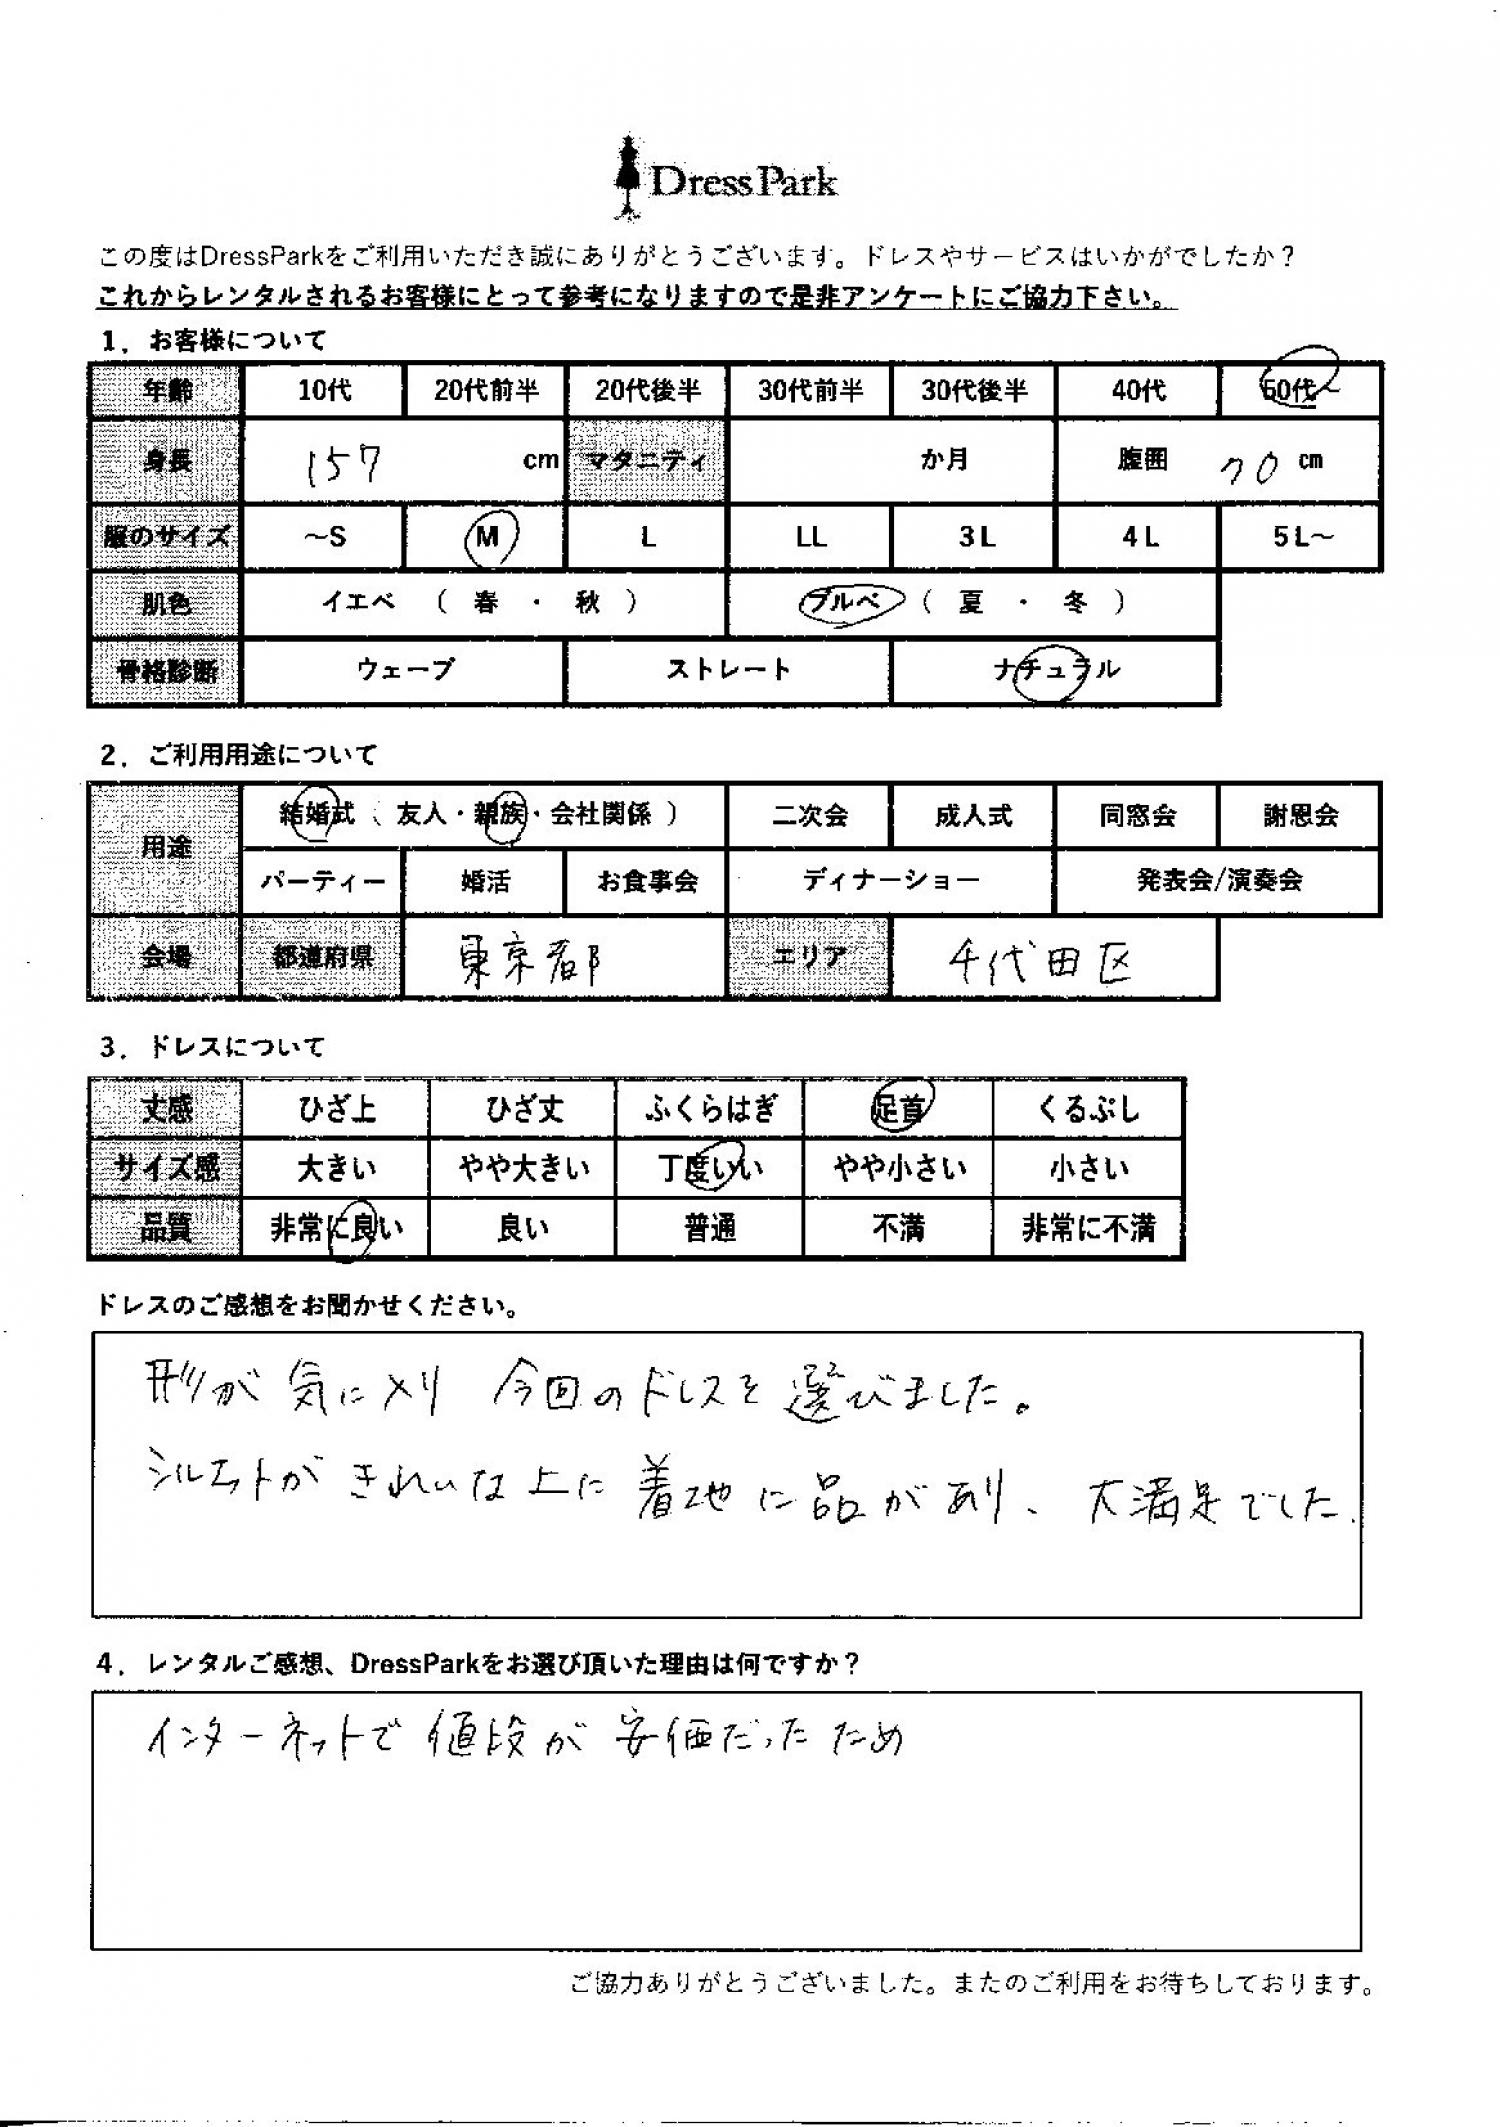 DressPark
この度はDressParkをご利用いただき誠にありがとうございます。ドレスやサービスはいかがでしたか？
これからレンタルされるお客様にとって参考になりますので是非アンケートにご協力下さい。
1．お客様について
年齢 10代 20代前半 20代後半 30代前半 30代後半 40代 50代～
身長 157 cm マタニティ か月 腹囲 70 cm
服のサイズ ～S M L LL 3L 4L 5L～
肌色 イエベ （ 春 ・ 秋 ） ブルベ （ 夏 ・ 冬 ）
骨格診断 ウェーブ ストレート ナチュラル
2．ご利用用途について
用途 結婚式（ 友人・親族・会社関係 ） 二次会 成人式 同窓会 謝恩会
パーティー 婚活 お食事会 ディナーショー 発表会/演奏会
会場 都道府県 東京都 エリア 千代田区
3．ドレスについて
丈感 ひざ上 ひざ丈 ふくらはぎ 足首 くるぶし
サイズ感 大きい やや大きい 丁度いい やや小さい 小さい
品質 非常に良い 良い 普通 不満 非常に不満
ドレスのご感想をお聞かせください。
形が気に入り 今回のドレスを選びました。
シルエットがきれいな上に着地に品があり、大満足でした.
4．レンタルご感想、DressParkをお選び頂いた理由は何ですか？
インターネットで値段が安価だったため
ご協力ありがとうございました。またのご利用をお待ちしております。